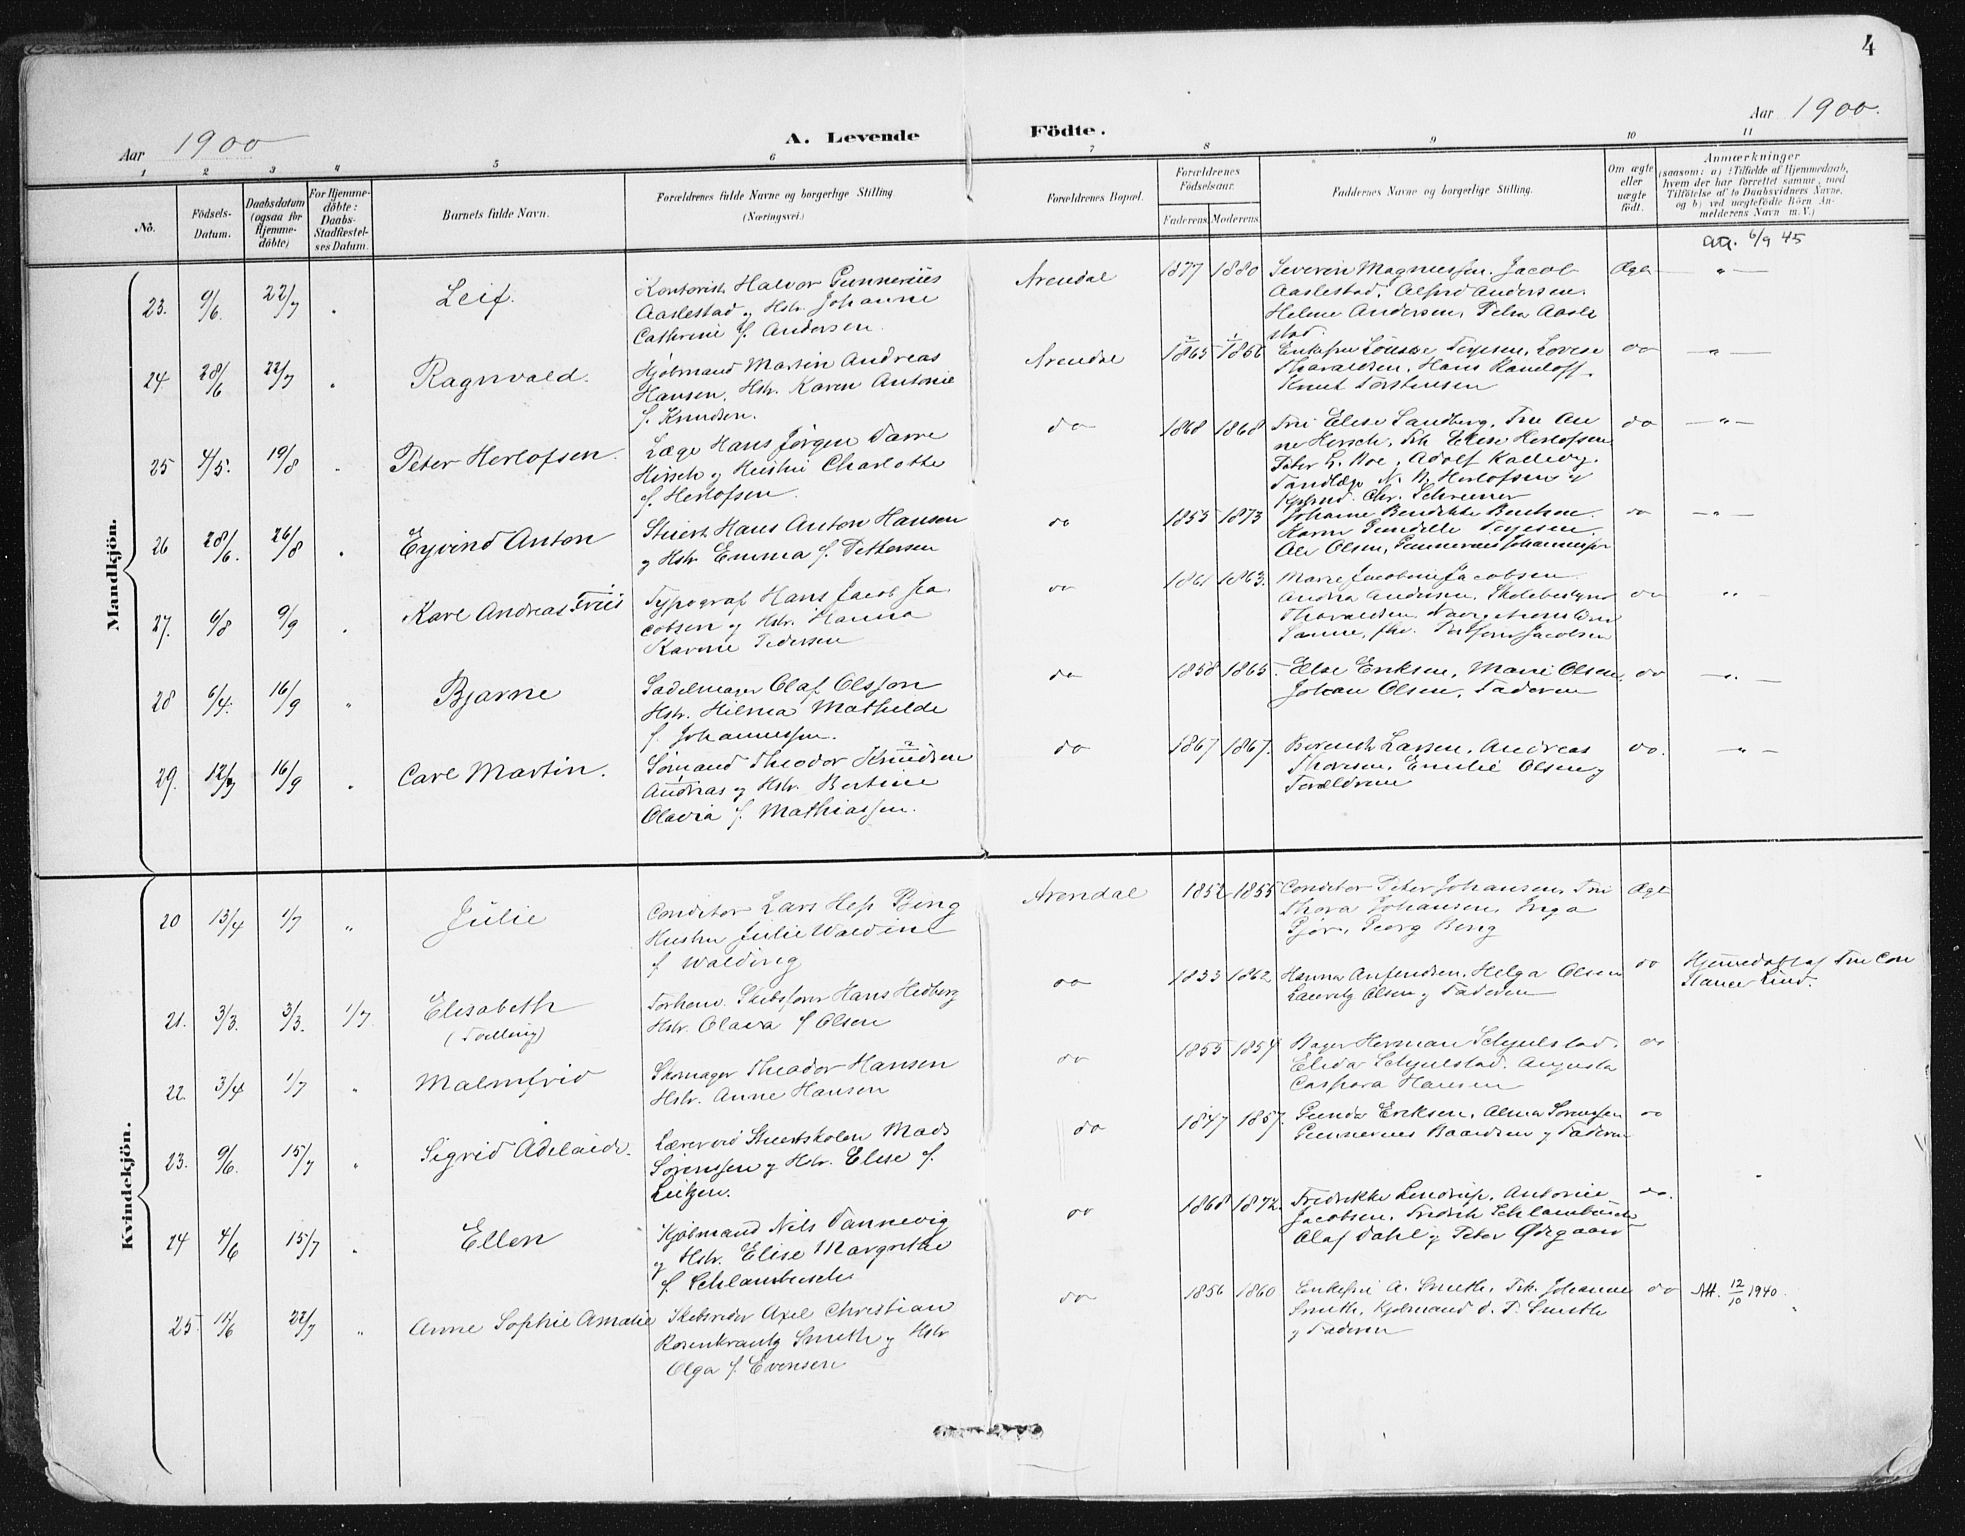 4
Aar 1900
A. Levende Födte.
Aar 1900.
1 2 3 4 5 6 7 8 9 10 11
No.
Födsels-Datum.
Daabsdatum (ogsaa for Hjemme-döbte)
For Hjemme-döbte: Daabs-Stadfæstel-ses Datum.
Barnets fulde Navn.
Forældrenes fulde Navne og borgerlige Stilling
(Næringsvei.)
Forældrenes Bopæl.
Forældrenes Födselsaar.
Faderens. Moderens.
Faddernes Navne og borgerlige Stilling.
Om ægte eller uægte födt.
Anmærkninger
(saasom: a) i Tilfælde af Hjemmedaab,
hvem der har forrettet samme, med
Tilföielse af to Daabsvidners Navne,
og b) ved uægtefödte Börn An-
melderens Navn m. V.)
Mandkjön.
23. 9/6. 22/7 Leif.
Kontorist Halvor Gunnerius
Aaslestad og Hstr. Johanne
Cathrine f. Andersen.
Arendal 1877 1880
Severin Magnussen. Jacob
Aaslestad, Alfred Andersen.
Helene Andersen, Petra Aasle
stad.
Ægte 6/9 45
24 28/6 22/7 " Ragnvald.
Kjøbmand Martin Andreas
Hansen, Hstr. Karen Antonie
f. Knudsen.
Arendal 1865 1866
Enkefru Louise Terjesen, Lovise
Tharaldsen, Hans
Knut Torstensen
do — " —
25 4/5. 19/8 " Peter Herlofsen.
Læge Hans Jørgen Darre
Hirsch og Hustru Charlotte
f. Herlofsen.
do 1868 1868
Fru Elise Sandberg, Fru An
ne Hirsch, Frk Elise Herlofsen
Peter L. Boe, Adolf Kallevig.
Tandlæge N. M. Herlofsen og
Kjøbmd. Chr. Schreiner
do — " —
26 28/6. 26/8 " Eyvind Anton
Stuert Hans Anton Hansen
og Hstr. Emma f. Pettersen
do 1853 1873
Johanne Bendikte Bentsen.
Karen Terjesen.
Ole Olsen, Gunnerius Johannessen
do — " —
27. 6/8 9/9 " Karl Andreas Friis
Typograf Hans Jacob Ja
cobsen og Hstr. Hanna
Karine Pedersen
do 1861 1863.
Marie Jacobine Jacobsen
Andrea Andersen, Skolebestyrer
Tharaldsen,
Sanne, Jacobsen
do " —
28 6/4. 16/9 " Bjarne
Sadelmager Olaf Olsson
Hstr. Hilma Mathilde
f. Johannessen.
do 1858 1865.
Else Eriksen, Marie Olsen,
Johan Olsen, Faderen
do — " —
29. 12/7 16/9 " Carl Martin.
Sømand Theodor Knudsen
Andreas og Hstr. Bertine
Olavia f. Mathiassen.
do 1867 1867.
Berenth Larsen, Andreas
Thoresen, Emilie Olsen og
Forældrene
do. — " —
Kvindekjön.
20 13/4 1/7 " Julie
Conditor Lars Hess Bing
Hustru Julie Waldine
f Walding
Arendal 1852 1855
Conditor Peter Johansen, Fru
Thora Johansen, Inga
Bjør, Georg Bing
Ægt
21. 3/3. 3/3. 1/7 Elisabeth
(Tvilling)
Forhenv. Skibsfører Hans Hedberg
Hstr. Olava f Olsen
do 1833 1862
Hanna Antendsen, Helga Olsen
Lauritz Olsen og Faderen
do
Hjemmedøbt af Fru Con
stance Lind.
22. 3/4 1/7 " Malmfrid
Skomager Theodor Hansen
Hstr. Anne Hansen
do 1855 1854
Bager Herman Schjulstad,
Elida Schjulstad. Augusta
Caspara Hansen
do
23. 9/6. 15/7 " Sigrid Adelaide.
Lærer ved Stuertskolen Mads
Sørenssen og Hstr. Elise f.
Lützen.
do 1847 1857.
Gunda Eriksen, Alma Sørenssen
Gunnerius Baardsen og Faderen
do
24 4/6 15/7 " Ellen
Kjøbmand Nils Dannevig
og Hstr. Elise Margrethe
f. Schlambusch
do 1868 1872.
Fredrikke Lendrup, Antonie
Jacobsen, Fredrik Schlambusch
Olaf Dahl og Peter Ødegaard
do.
25. 11/6 22/7 " Anne Sophie Amalie
Skibsreder Axel Christian
Rosenkrantz Smith og Hstr
Olga f. Evensen
do 1856 1860
Enkefru A. Smith, Frk. Johanne
Smith, Kjøbmand d. F. Smith
og Faderen
do Att. 12/10 1940.